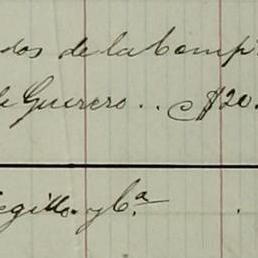 dos de la Comp
de Guerero .. $20.
egillo y Ca